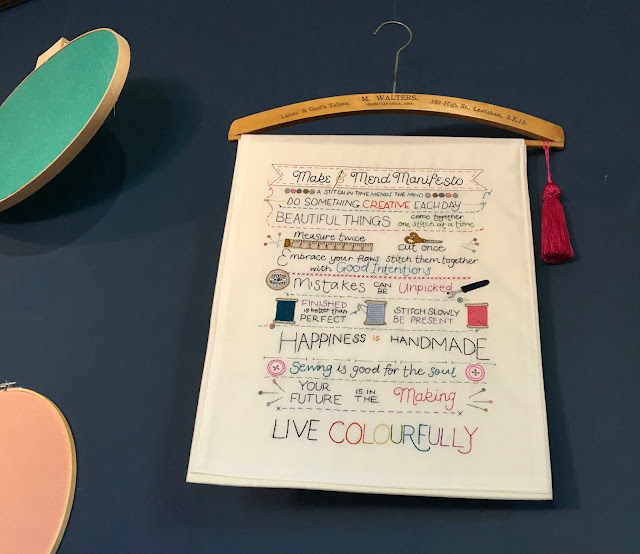 M. WALTERS.
Ladies' & Gent's Tailor.
180 High St., Lewisham, S.E.13.
Make & Mend Manifesto
A STITCH IN TIME MENDS THE MIND
DO SOMETHING CREATIVE EACH DAY
BEAUTIFUL THINGS come together
one stitch at a time
measure twice cut once
Embrace your flaws stitch them together
with Good Intentions
MISTAKES CAN BE Unpicked
FINISHED is better than PERFECT
STITCH SLOWLY BE PRESENT
HAPPINESS IS HANDMADE
Sewing is good for the soul
YOUR FUTURE IS IN THE Making
LIVE COLOURFULLY